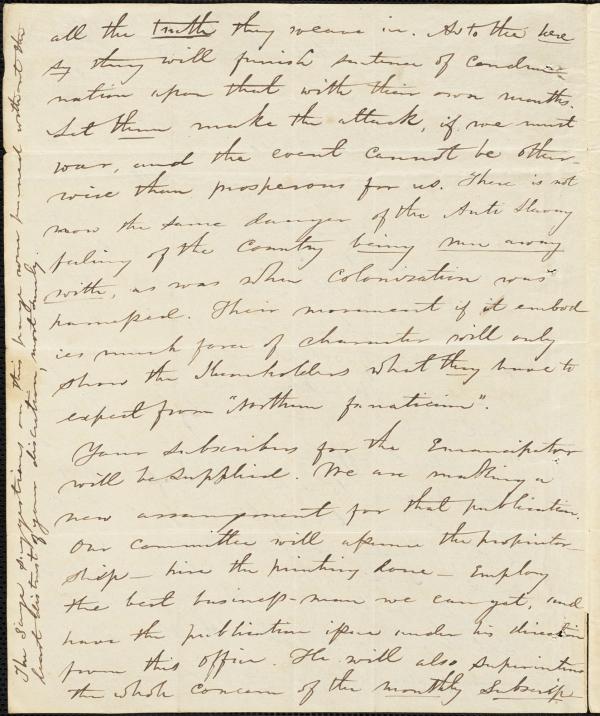 all the truth they weave in. As to the here
sy they will furnish sentence of condem
nation upon that with their own mouths.
Let them make the attack, if we must
war, and the event cannot be other-
wise than prosperous for us. There is not
now the same danger of the Anti Slavery
feeling of the country being run away
with, as was when colonization was
pampered. Their movement if it embod
ies much force of character will only
show the slaveholders what they have to
expect from "Northern fanaticism".
Your subscribers for the Emancipator
will be supplied. We are making a
new arrangement for that publication.
Our committee will assume the proprietor-
ship - hire the printing done - Employ
the best business-man we can get, and
have the publication issue under his direction
from this office. He will also superintend
the whole concern of the monthly Subscrip-
The sage suggestions on this page were penned without the
least distrust of your discretion, not